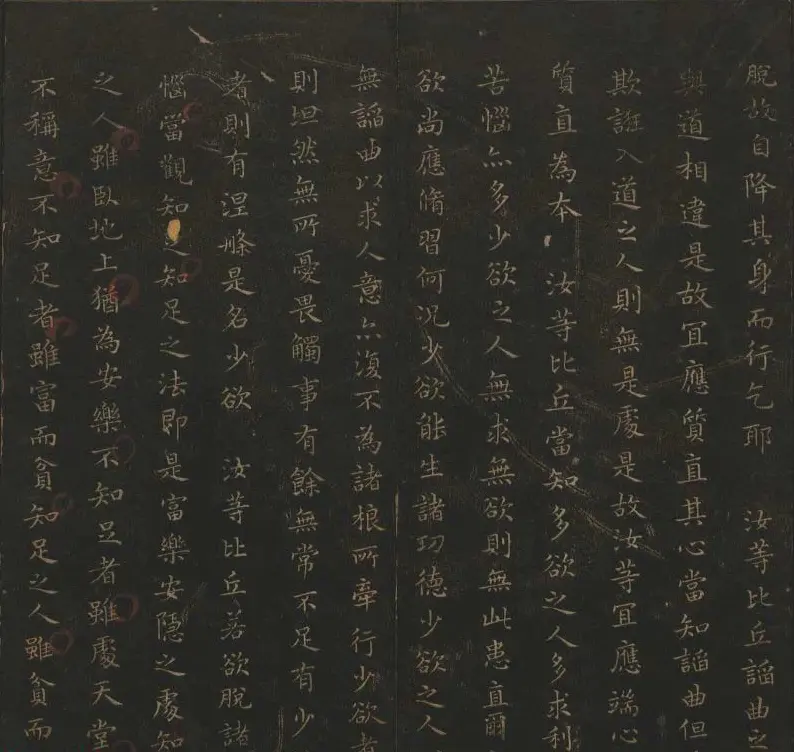 脫故自降其身而行乞耶 汝等比丘諂曲之
與道相違是故宜應質直其心當知諂曲但
欺誑入道之人則無是處是故汝等宜應端心
質直為本 汝等比丘當知多欲之人多求利
苦惱亦多少欲之人無求無欲則無此患直爾
欲尚應脩習何況少欲能生諸功德少欲之人
無諂曲以求人意亦復不為諸根所牽行少欲者
則坦然無所憂畏觸事有餘無常不足有少
者則有涅槃是名少欲 汝等比丘若欲脫諸
惱當觀知足知足之法即是富樂安隱之處知
之人雖臥地上猶為安樂不知足者雖處天堂
不稱意不知足者雖富而貧知足之人雖貧而